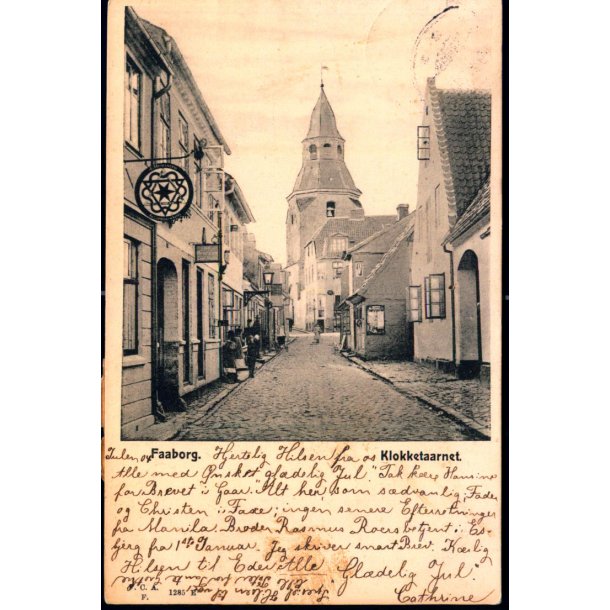 Faaborg. Klokketaarnet.
Julen 04 Hjertelig Hilsen fra os
Alle med Ønsket glædelig Jul." Tak kære Hansine
for Brevet i Gaar." Alt her som sædvanlig; Fader
og Christen i Faxe; ingen senere Efterretninger
fra Manila. Broder Rasmus Roersbetjent i Es-
bjerg fra 1ste Januar. Jeg skriver snart Brev. Kærlig
Hilsen til Eder Alle Glædelig Jul."
Cathrine
P. C. A.
F. 1285 E